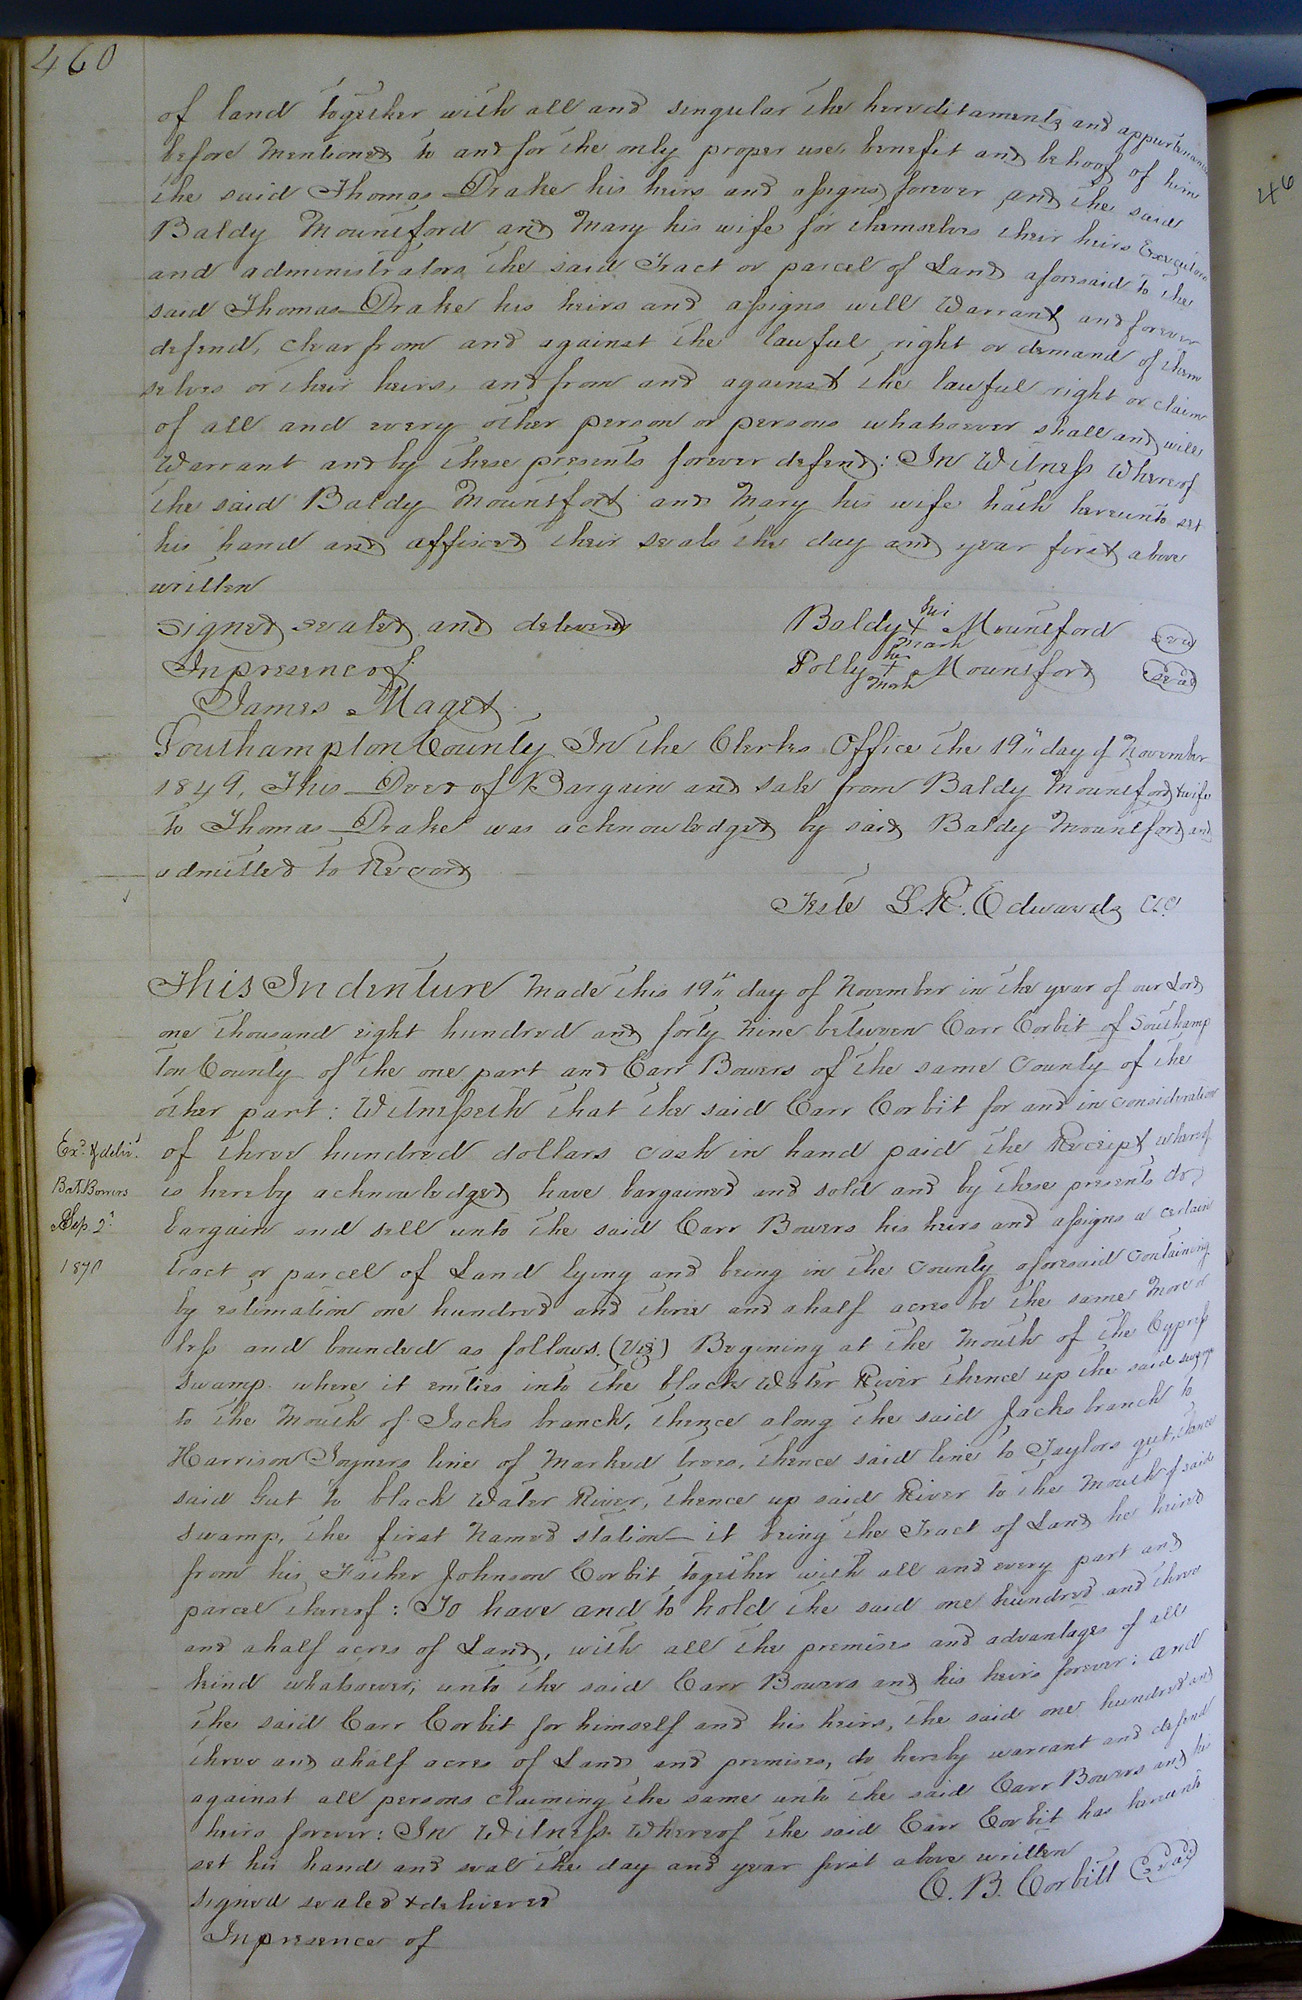 460
of land together with all and singular the hereditaments and appurtenances
before mentioned to and for the only proper use, benefit and behoof of him
the said Thomas Drake his heirs and assigns forever and the said
Baldy Mountford and Mary his wife for themselves their heirs Executors
and administrators the said Tract or parcel of Land aforesaid to the
said Thomas Drake his heirs and assigns will Warrant and forever
defend, clear from and against the lawful right or demand of them
selves or their heirs, and from and against the lawful right or claim
of all and every other person or persons whatsoever shall and will
Warrant and by these presents forever defend: In Witness Whereof
the said Baldy Mountford and Mary his wife hath hereunto set
his hand and affixed their seals the day and year first above
written
Signed sealed and delivered
In presence of
James Maget
Baldy his + mark Mountford seal
Polly her + mark Mountford seal
Southampton County In the Clerks Office the 19" day of November
1849, This Deed of Bargain and sale from Baldy Mountford & wife
to Thomas Drake was acknowledged by said Baldy Mountford and
admitted to Record
Teste L. R. Edwards CC
This Indenture Made this 19th day of November in the year of our Lord
one thousand eight hundred and forty Nine between Carr Corbit of Southamp
ton County of the one part and Carr Bowers of the same County of the
other part: Witnesseth that the said Carr Corbit for and in consideration
of three hundred dollars cash in hand paid the Receipt whereof
is hereby acknowledged have bargained and sold and by these presents do
bargain and sell unto the said Carr Bowers his heirs and assigns a certain
tract or parcel of Land lying and being in the County aforesaid Containing
by estimation one hundred and three and a half acres be the same more or
less and bounded as follows. (Viz) Begining at the Mouth of the Cypress
Swamp where it emties into the black Water River thence up the said swamp
to the Mouth of Jacks branch, thence along the said Jacks branch to
Harrison Joyners line of Marked trees, thence said line to Taylors gut, thence
said Gut to black Water River, thence up said River to the Mouth of said
Swamp, the first Named station it being the Tract of Land he heired
from his Father Johnson Corbit together with all and every part and
parcel thereof: To have and to hold the said one hundred and three
and a half acres of Land, with all the premises and advantages of all
kind whatsoever; unto the said Carr Bowers and his heirs forever: and
the said Carr Corbit for himself and his heirs, the said one hundred and
three and a half acres of Land and premises, do hereby warrant and defend
against all persons claiming the same unto the said Carr Bowers and his
heirs forever: In Witness Whereof the said Carr Corbit has hereunto
set his hand and seal the day and year first above written
Signed sealed & delivered
In presence of
C. B. Corbitt Seal
Exd. & deliv.
Bowers
Sep 2
1870
46